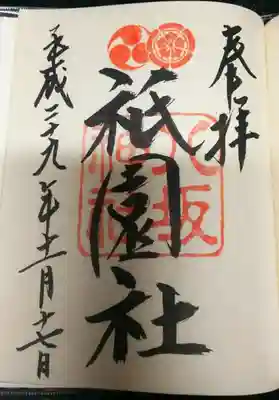 奉拝
八坂神社
祇園社
平成二十九年十一月十七日